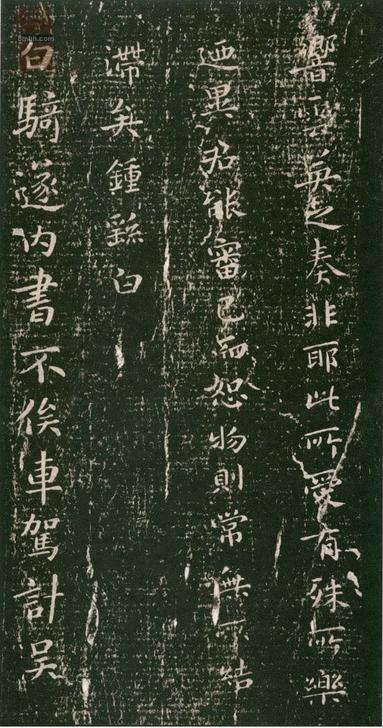 響雲英之奏非耶此所愛有殊所樂
迺異君能審己而恕物則常無所結
滯矣鍾繇白
白騎遂内書不俟車駕計吳